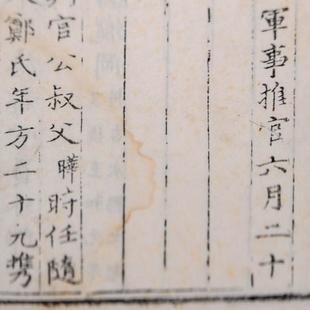 軍事推官六月二十
官公叔父曄時任隨
鄭氏年方二十元携